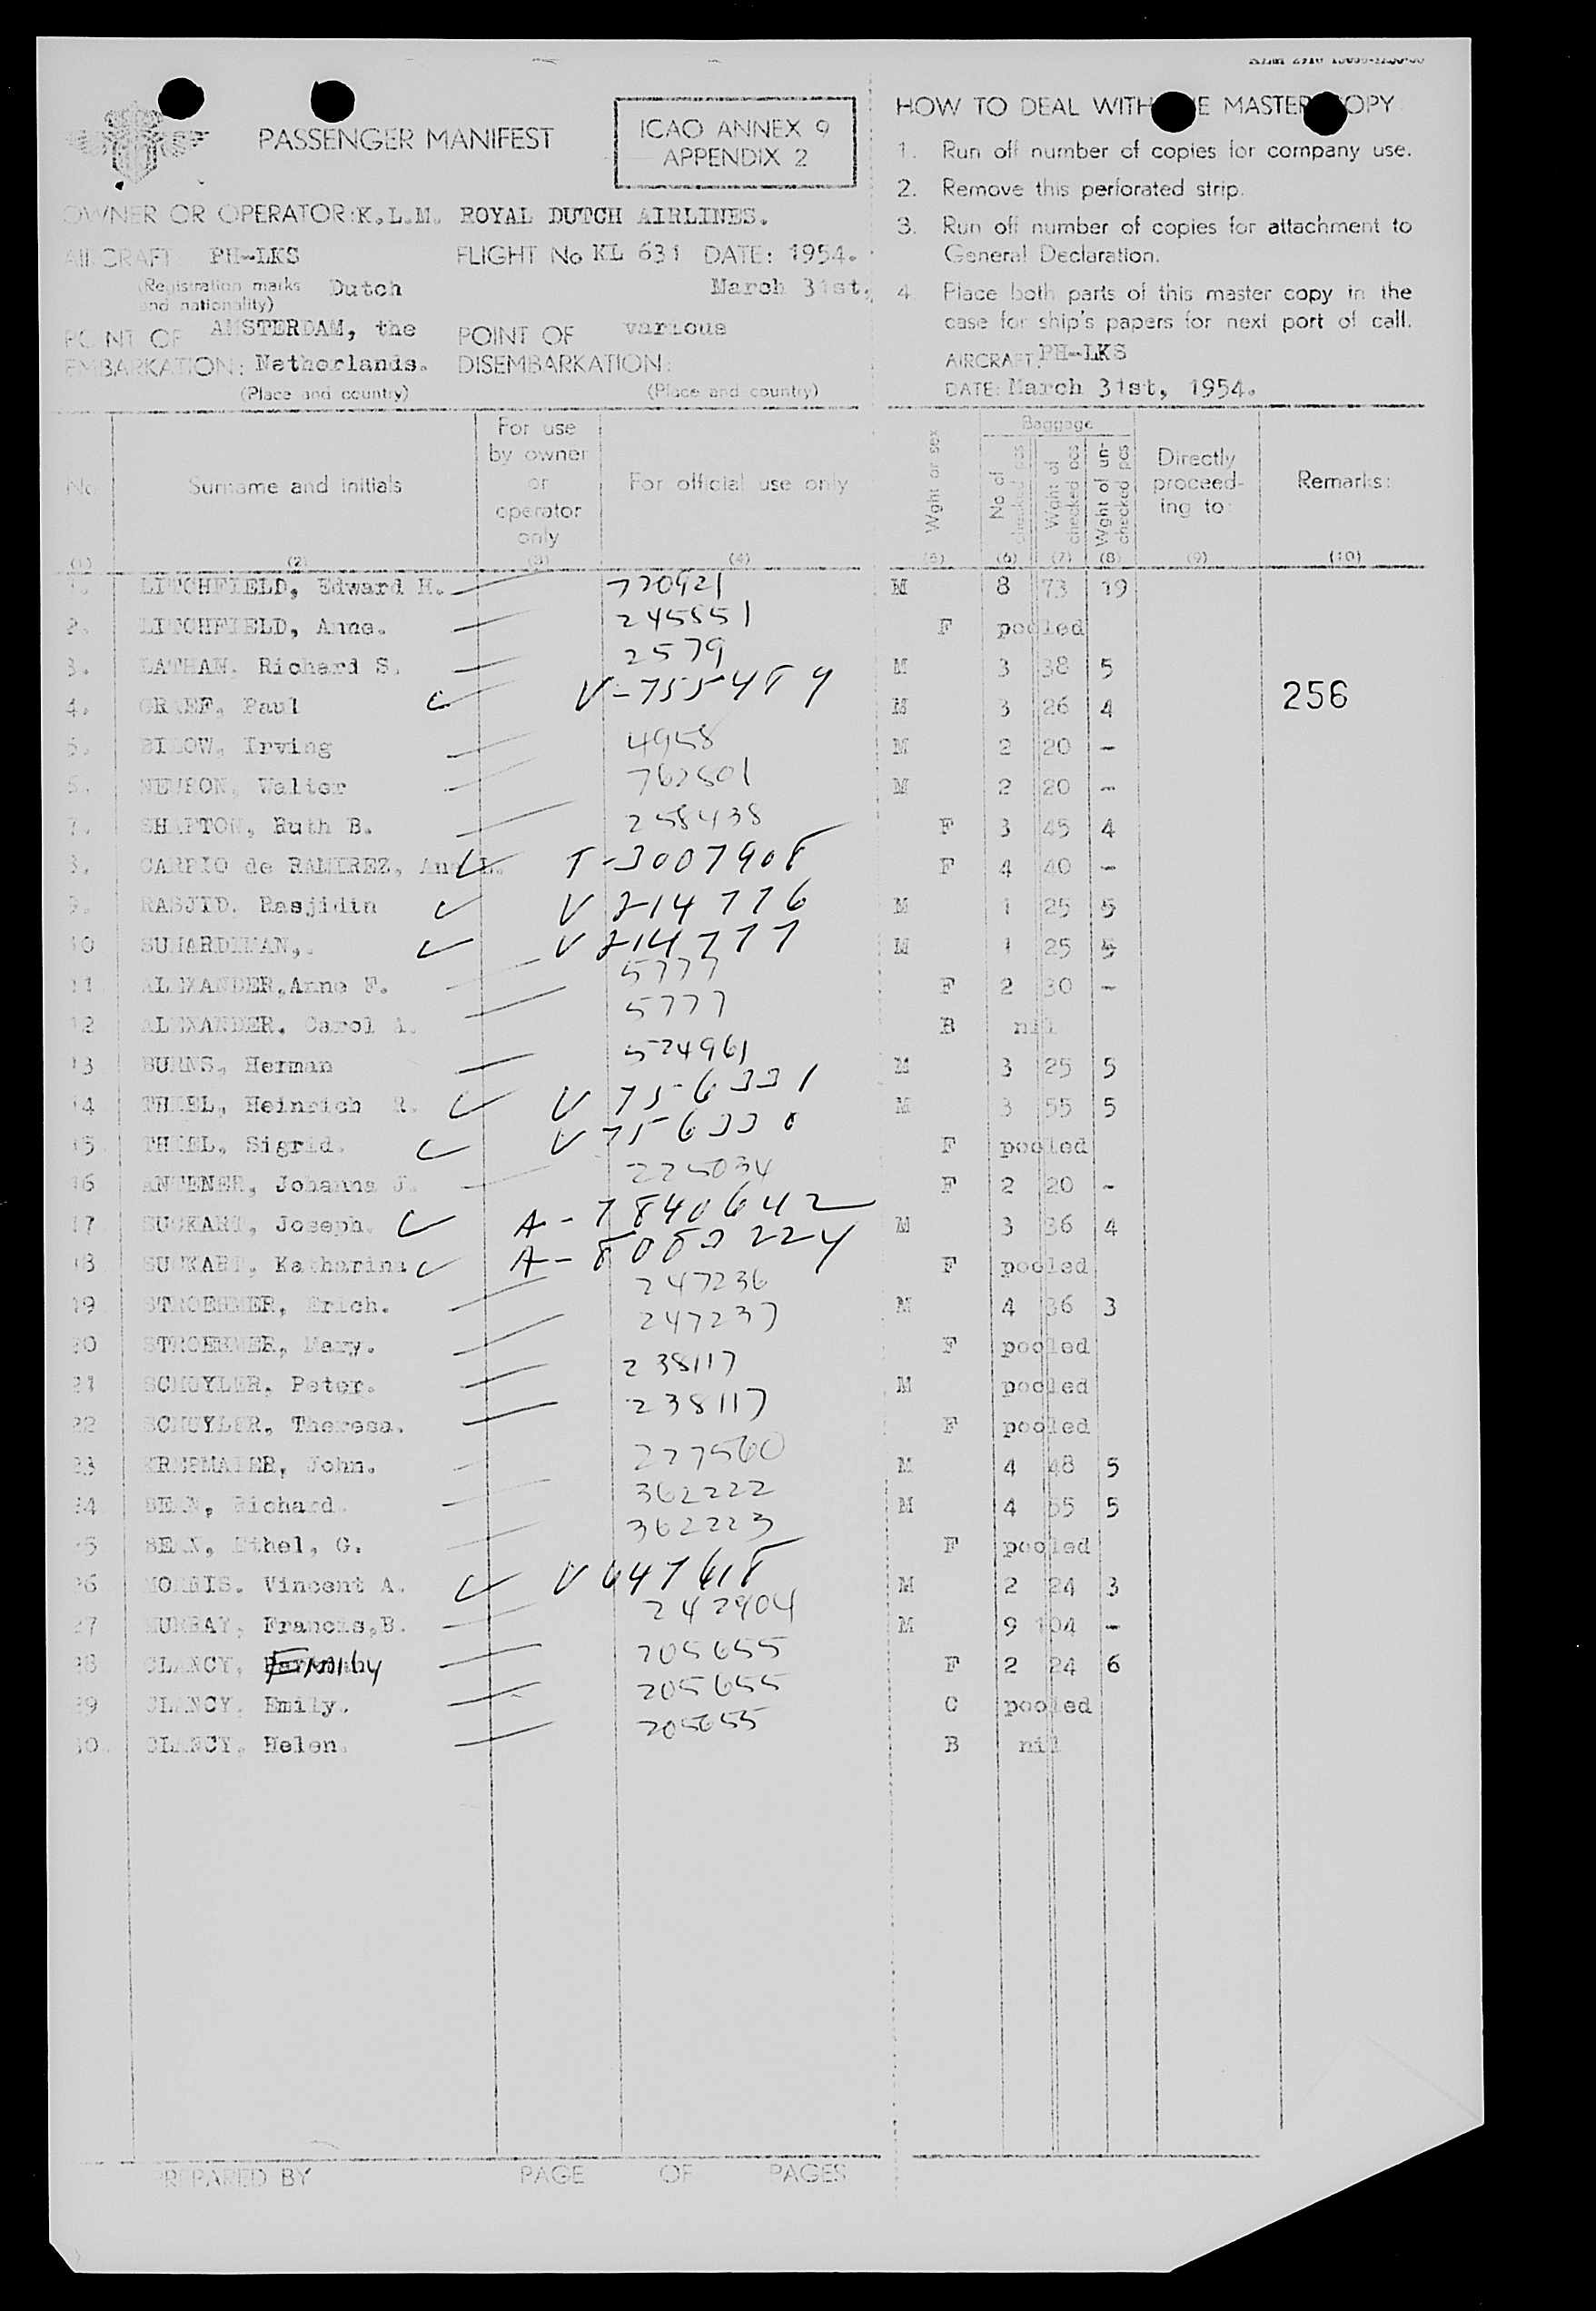 PASSENGER MANIFEST
ICAO ANNEX 9
APPENDIX 2
OWNER OR OPERATOR: K.L.M. ROYAL DUTCH AIRLINES.
AIRCRAFT PH-LKS FLIGHT No KL 631 DATE: 1954.
(Registration marks and nationality) Dutch March 31st,
POINT OF EMBARKATION: AMSTERDAM, the Netherlands. POINT OF DISEMBARKATION: various
(Place and country) (Place and country)
HOW TO DEAL WITH E MASTER OPY
1. Run off number of copies for company use.
2. Remove this perforated strip.
3. Run off number of copies for attachment to
General Declaration.
4. Place both parts of this master copy in the
case for ship's papers for next port of call.
AIRCRAFT: PH-LKS
DATE: March 31st, 1954.
No Surname and initials For use by owner or operator only For official use only Wght or sex Baggage No of checked pcs Wght of checked pcs Wght of un-checked pcs Directly proceed-ing to: Remarks:
(1) (2) (3) (4) (5) (6) (7) (8) (9) (10)
1. LITCHFIELD, Edward H. 770921 M 8 73 19
2. LITCHFIELD, Anne. 245851 F pooled
3. LATHAM. Richard S. 2579 M 3 38 5
4. GRAEF, Paul V-755484 M 3 26 4
256
5. BILOW, Irving 4958 M 2 20 -
6. Walter 762801 M 2 20 -
7. SHAPTON, Ruth B. 258438 F 3 45 4
8. CARPIO de RAMIREZ, Ana L. T-3007908 F 4 40 -
9. RASJID. Rasjidin V 214776 M 1 25 5
10 SUHARDIMAN,. V 214777 M 1 25 5
11 ALEXANDER, Anne F. 5777 F 2 30 -
12 ALEXANDER, Carol A. 5777 B nil
13 BURNS, Herman 524961 M 3 25 5
14 THIEL, Heinrich R. V 756331 M 3 55 5
15 THIEL, Sigrid. V 756330 F pooled
16 Johanna J. 225034 F 2 20 -
17 SUCKART, Joseph. A-7840642 M 3 36 4
18 SUCKART, Katharina A-8083224 F pooled
19 STROEHMER, Erich. 247236 M 4 36 3
20 STROEHMER, Mary. 247237 F pooled
21 SCHUYLER, Peter. 238117 M pooled
22 SCHUYLER, Theresa. 238117 F pooled
23 John. 227560 M 4 48 5
24 BEAN, Richard. 362222 M 4 55 5
25 BEAN, Ethel, G. 362223 F pooled
26 MORRIS. Vincent A. V 647618 M 2 24 3
27 MURRAY, Francis, B. 242904 M 9 104 -
28 CLANCY, Emily 205655 F 2 24 6
29 CLANCY. Emily. 205655 C pooled
30. CLANCY, Helen. 205655 B nil
PREPARED BY PAGE OF PAGES